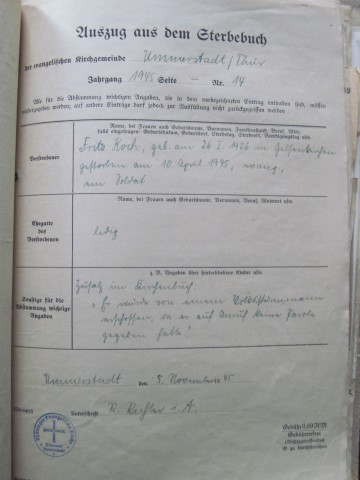 Auszug aus dem Sterbebuch
der evangelischen Kirchgemeinde Ummerstadt/Thür
Jahrgang 1945 Seite – Nr. 14
Alle für die Abstammung wichtigen Angaben, die in dem vorbezeichneten Eintrag enthalten sind, müssen
wiedergegeben werden; auf andere Einträge darf jedoch zur Ausfüllung nicht zurückgegriffen werden
Name, bei Frauen auch Geburtsname, Vornamen, Familienstand, Beruf, Alter,
Verstorbener
Fritz Koch, geb. am 26. I. 1926 in Gelsenkirchen
gestorben am 10. April 1945, evang.,
ein Soldat
Name, bei Frauen auch Geburtsname, Vornamen, Beruf, Wohnort usw.
Ehegatte
des
Verstorbenen
ledig
z. B. Angaben über hinterbliebene Kinder usw.
Sonstige für die
Abstammung wichtige
Angaben
Zusatz im Kirchenbuch:
„Er wurde von einem Volkssturmmann
erschossen, da er auf Anruf keine Parole
gegeben hatte“
Ummerstadt, den 5. November 45
Unterschrift
Gebühr 0,60 RM
Gebührenfrei